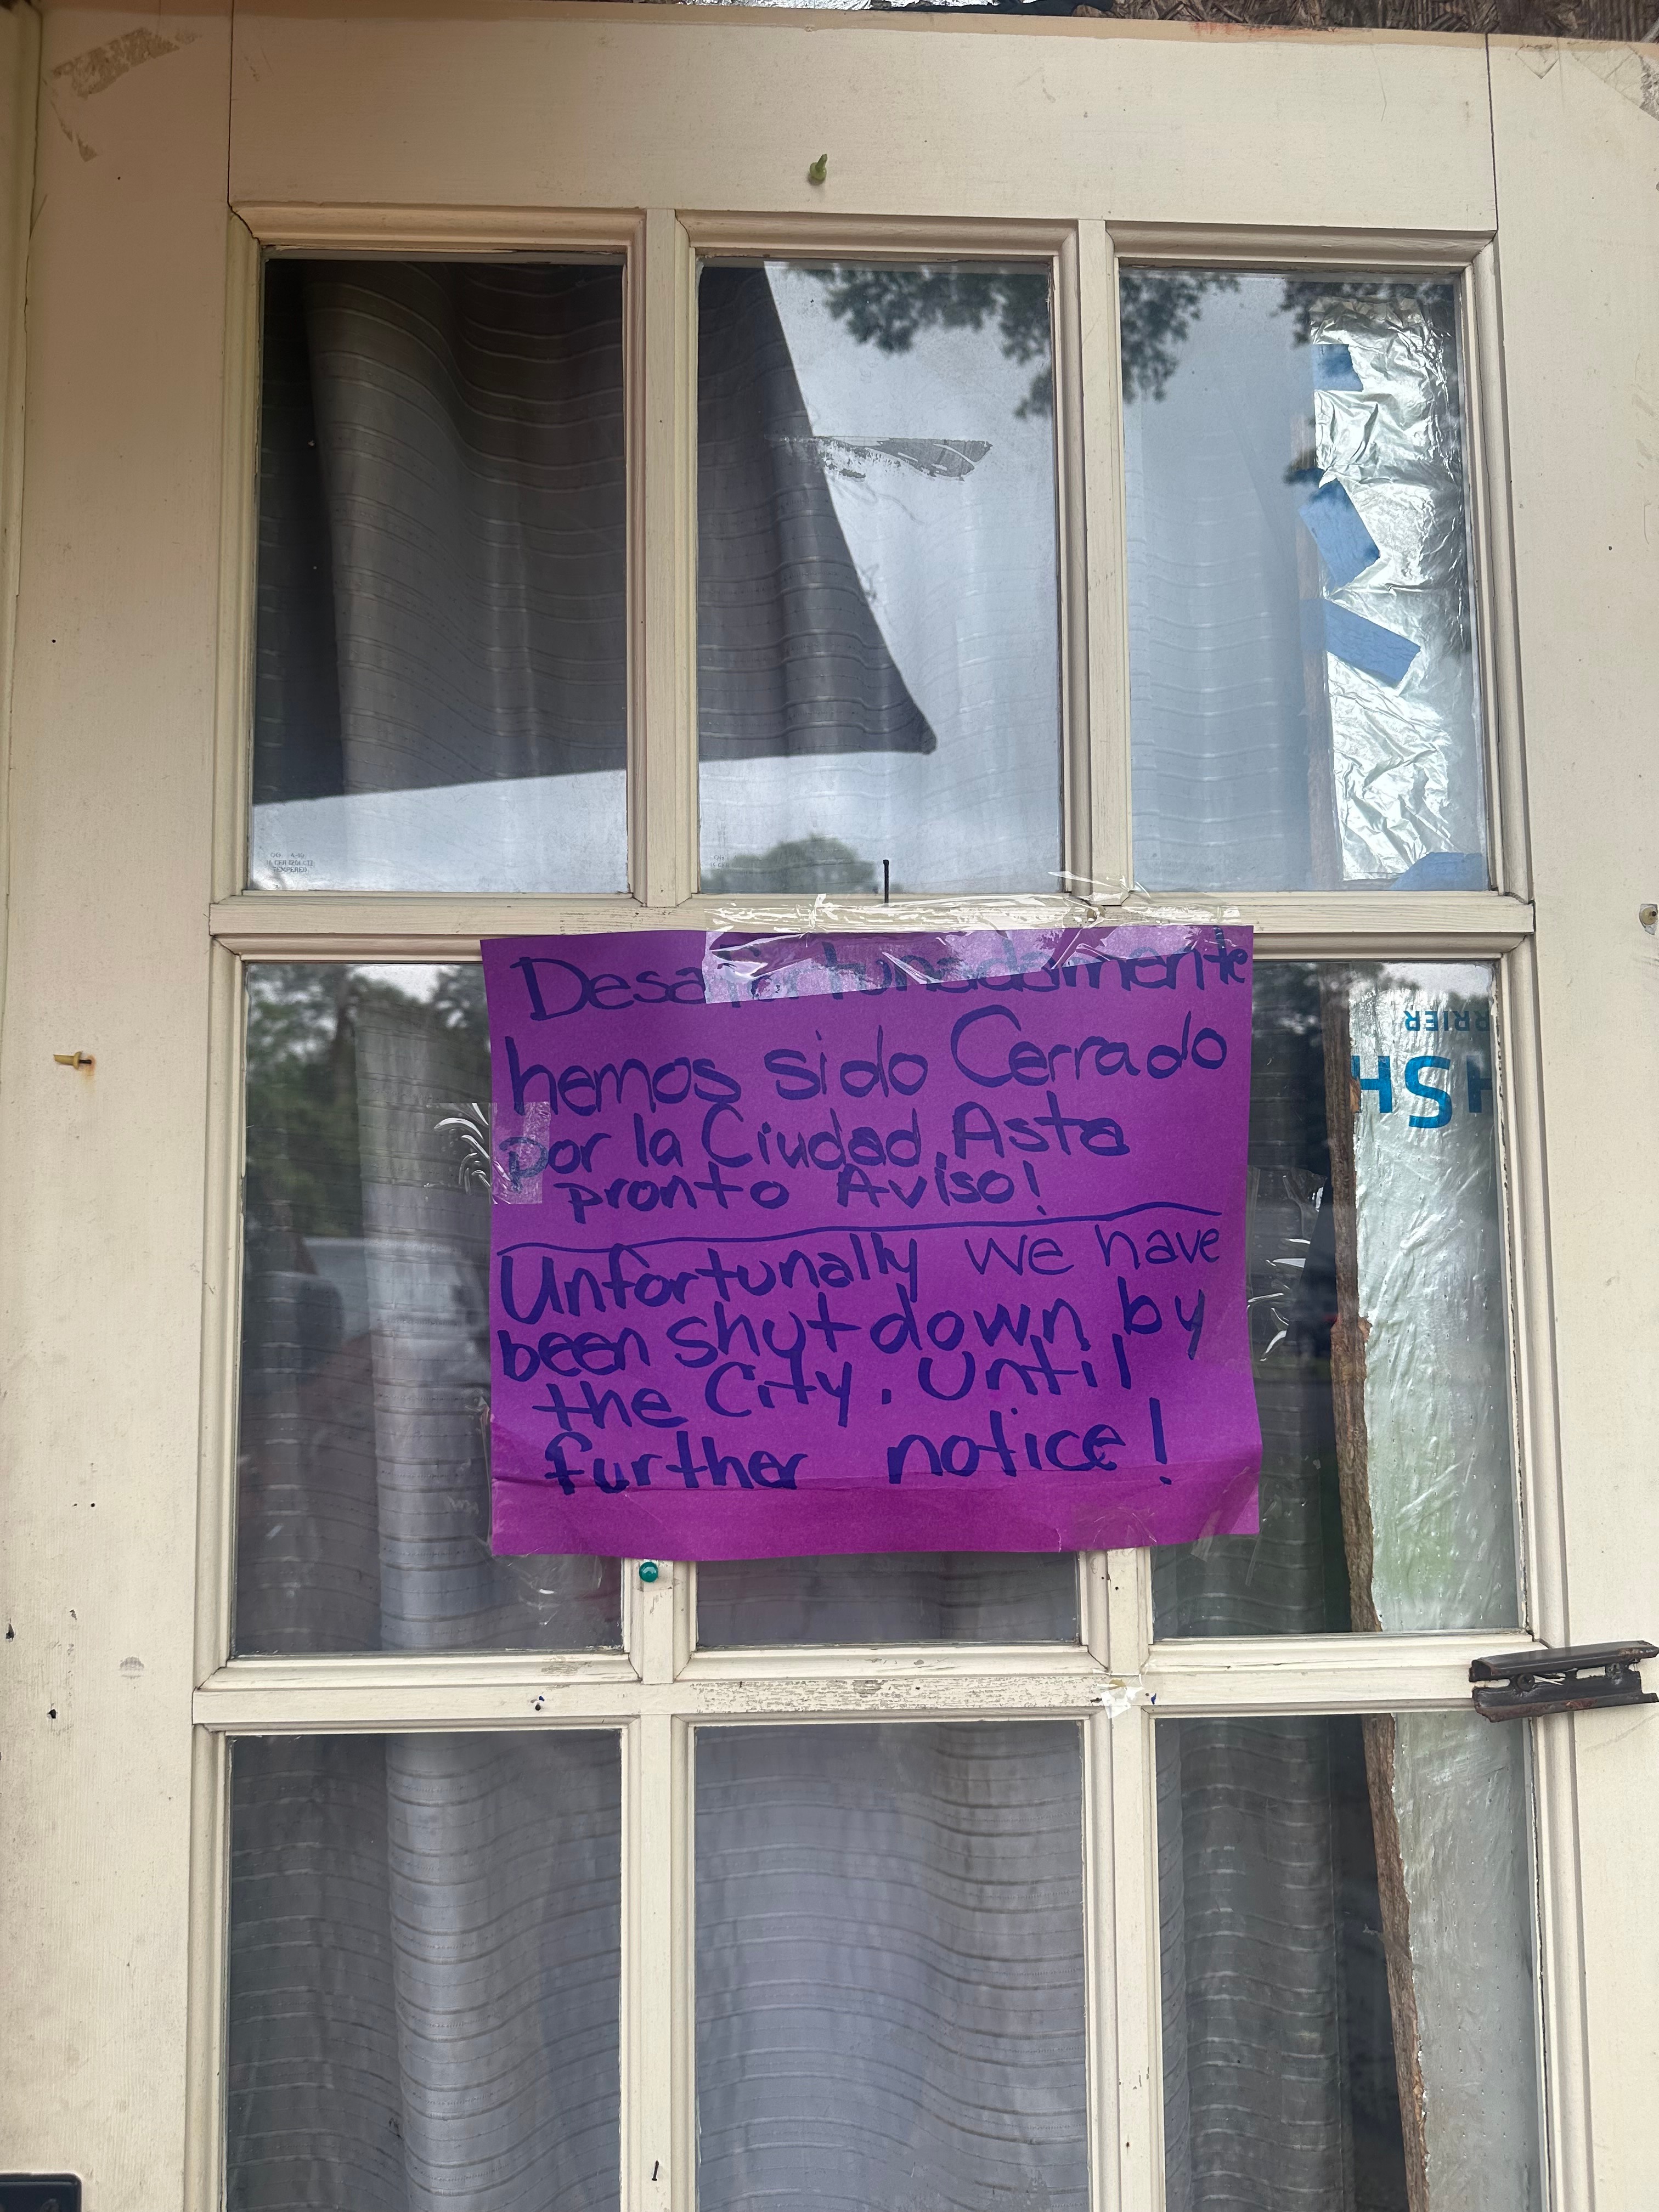 Desafortunadamente
hemos sido Cerrado
por la Ciudad, Asta
pronto Aviso!
Unfortunally we have
been shut down by
the City. Until
further notice!
TEMPERED
RRIER
HSH